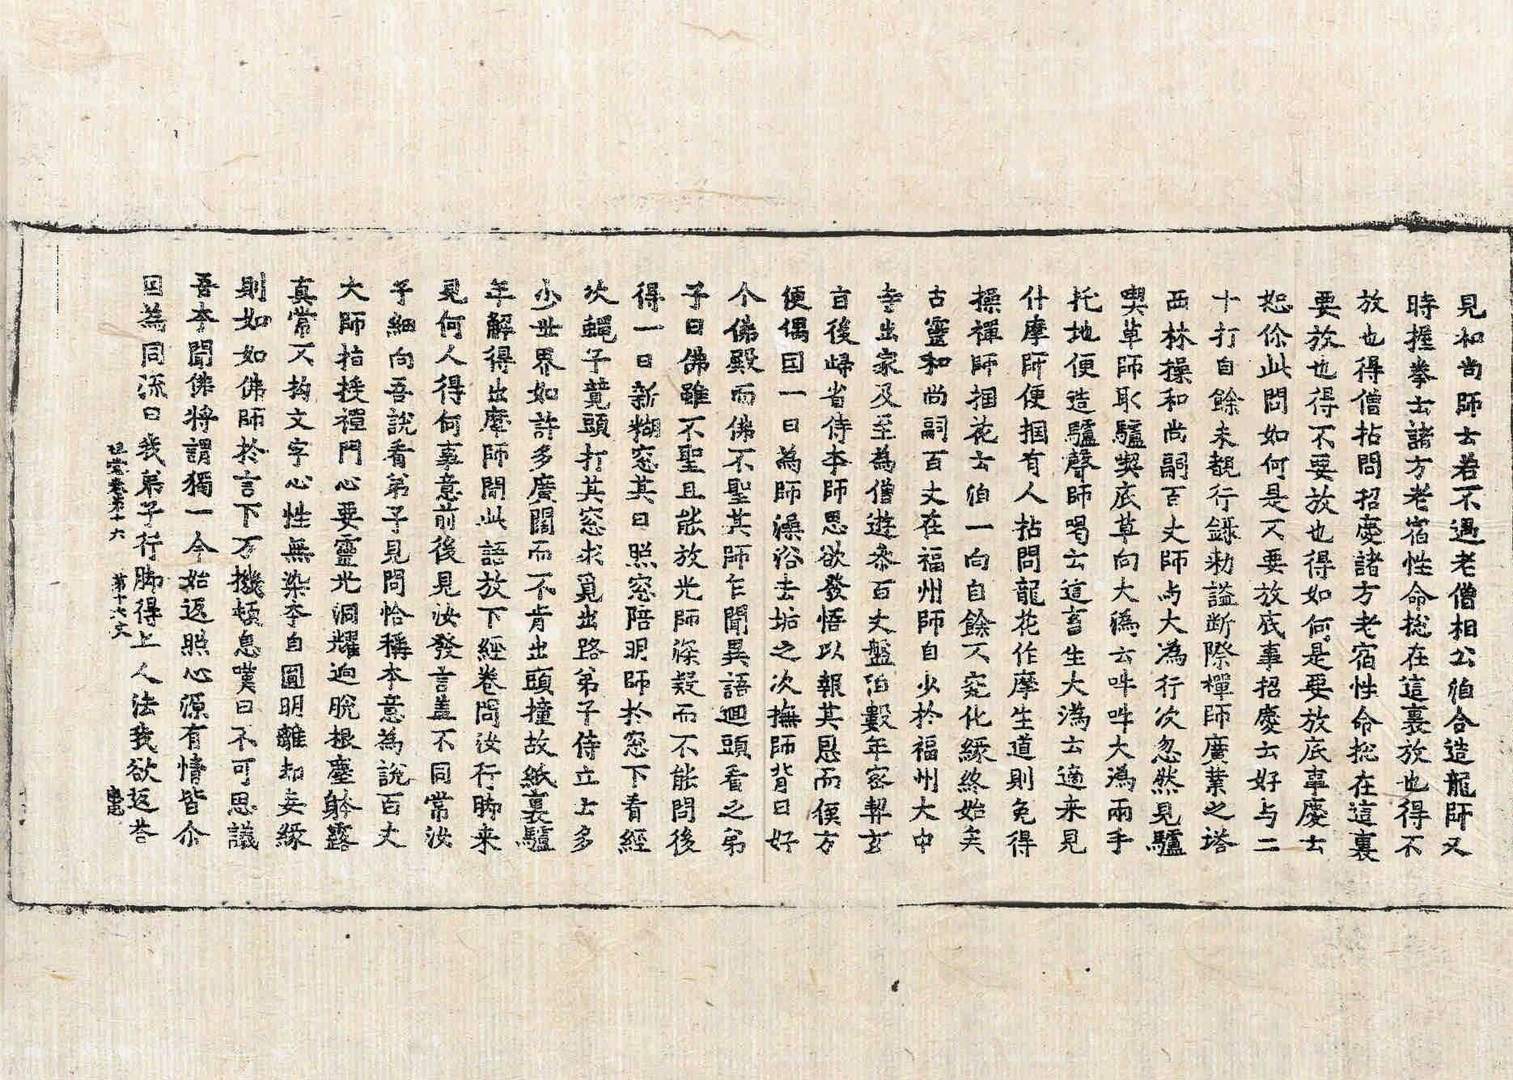 見和尚師云若不遇老僧相公洎合造龍師又
時握拳云諸方老宿性命惣在這裏放也得不
放也得僧拈問招慶諸方老宿性命惣在這裏
要放也得不要放也得如何是要放底事慶云
恕你此問如何是不要放底事招慶云好与二
十打自餘未覩行錄勑謚斷際禪師廣業之塔
西林操和尚嗣百丈師与大為行次忽然見驢
喫草師取驢喫底草向大溈云吽吽大溈兩手
托地便造驢聲師喝云這畜生大溈云適来見
什摩師便摑有人拈問龍花作摩生道則免得
操禪師摑花云洎一向自餘不究化緣終始矣
古靈和尚嗣百丈在福州師自少於福州大中
寺出家及至為僧遊叅百丈盤泊數年密契玄
旨後歸省侍本師思欲發悟以報其恩而俟方
便偶因一日為師澡浴去垢之次撫師背曰好
个佛殿而佛不聖其師乍聞異語迴頭看之弟
子曰佛雖不聖且能放光師深疑而不能問後
得一日新糊窓其日照窓陪明師於窓下看經
次蠅子競頭打其窓求覓出路弟子侍立云多
少世界如許多廣闊而不肯出頭撞故紙裏驢
年解得出摩師聞此語放下經卷問汝行脚来
見何人得何事意前後見汝發言蓋不同常汝
子細向吾說看弟子見問恰稱本意為說百丈
大師指授禪門心要靈光洞耀迥脫根塵躰露
真常不拘文字心性無染本自圓明離却妄緣
則如如佛師於言下万機頓息嘆曰不可思議
吾本聞佛將謂獨一今始返照心源有情皆尒
因為同流曰我弟子行脚得上人法我欲返荅
祖堂卷第十六 第十七丈